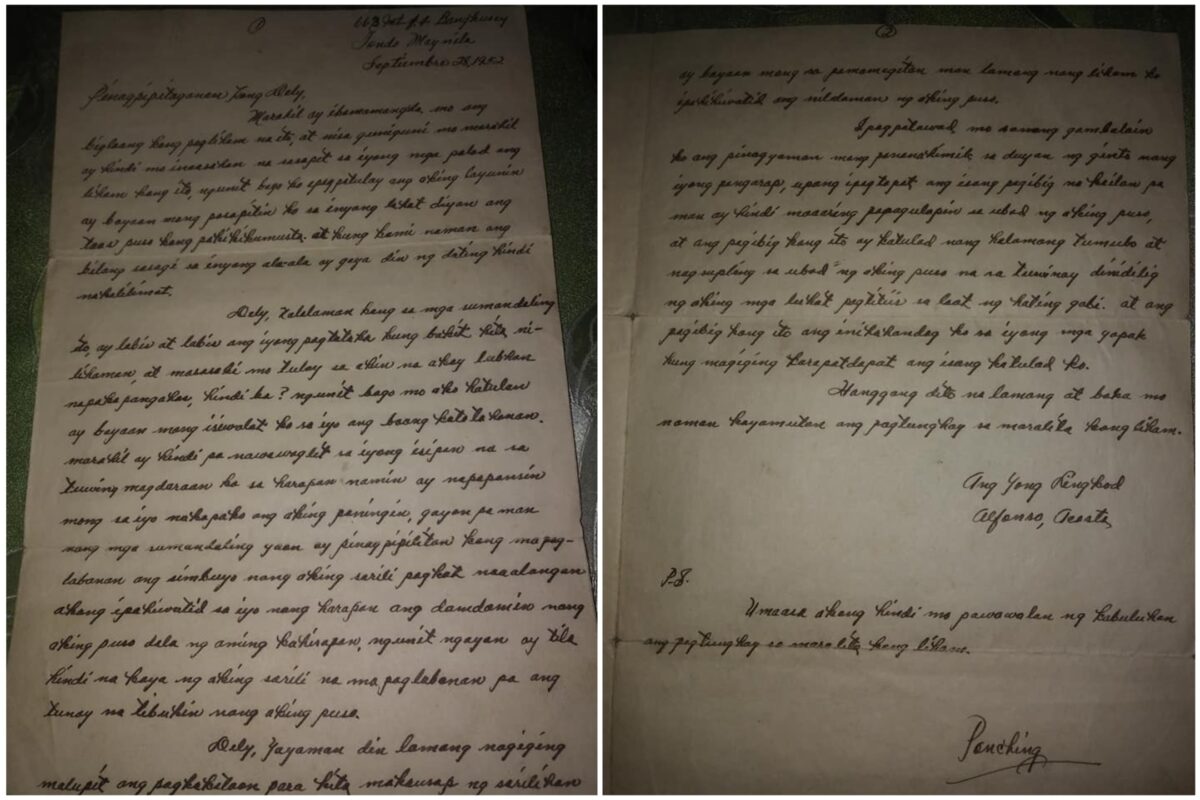 ①
663 Int. P. S. Bangkusay
Tondo Maynila
Septiembre 28, 1952
Pinagpipitaganan kong Dely,
Marahil ay ibamamangha mo ang
biglaang kong pagliham na ito, at nisa guniguni mo marahil
ay hindi mo inaasahan na sasapit sa iyong mga palad ang
liham kong ito, ngunit bago ko ipagpitulay ang aking layunin
ay bayaan mong pasapitin ko sa inyong lahat diyan ang
taos puso kong pakikikumusta. at kung kami naman ang
bilang sasagi sa inyong alaala ay gaya din ng dating hindi
nakalilimot.
Dely, talalaman kong sa mga sumandaling
ito, ay labis at labis ang iyong pagtataka kung bakit kita ni-
lihaman, at masasabi mo tuloy sa akin na akoy lubhan
napakapangahas, hindi ba? ngunit bago mo ako hatulan
ay bayaan mong isiwalat ko sa iyo ang boong katotohanan.
marahil ay hindi pa nawawaglit sa iyong isipan na sa
tuwing magdaraan ka sa harapan namin ay napapansin
mong sa iyo nakapako ang aking paningin, gayon pa man
nang mga sumandaling yaon ay pinagpipilitan kong mapag-
labanan ang simbuyo nang aking sarili pagkat naaalangan
akong ipahiwatid sa iyo nang harapan ang damdamin nang
aking puso dala ng aming kahirapan, ngunit ngayon ay tila
hindi na kaya ng aking sarili na mapaglabanan pa ang
tunay na tibukin nang aking puso.
Dely, yayaman din lamang nagiging
malupit ang pagkakataon para kita makausap ng sarilihan
②
ay bayaan mong sa pamamagitan man lamang nang liham ko
ipahiwatid ang nildaman ng aking puso.
Ipagpatawad mo sanang gambalain
ko ang pinagyaman mong pananahimik sa duyan ng ginto nang
iyong pangarap, upang ipagtapat ang isang pagibig na kailan pa
man ay hindi maaaring papagulapin sa ubod ng aking puso,
at ang pagibig kong ito ay katulad nang halamang tumubo at
nagsupling sa ubod ng aking puso na sa tuwinay dinidilig
ng aking mga luhat pagtitiis sa laot ng hating gabi. at ang
pagibig kong ito ang inihahandog ko sa iyong mga yapak
kung magiging karapatdapat ang isang katulad ko.
Hanggang dito na lamang at baka mo
naman kayamutan ang pagtunghay sa maralita kong liham.
Ang Yong Lingkod
Alfonso, Acosta
P.S.
Umaasa akong hindi mo pawawalan ng kabuluhan
ang pagtunghay sa maralita kong liham.
Ponching